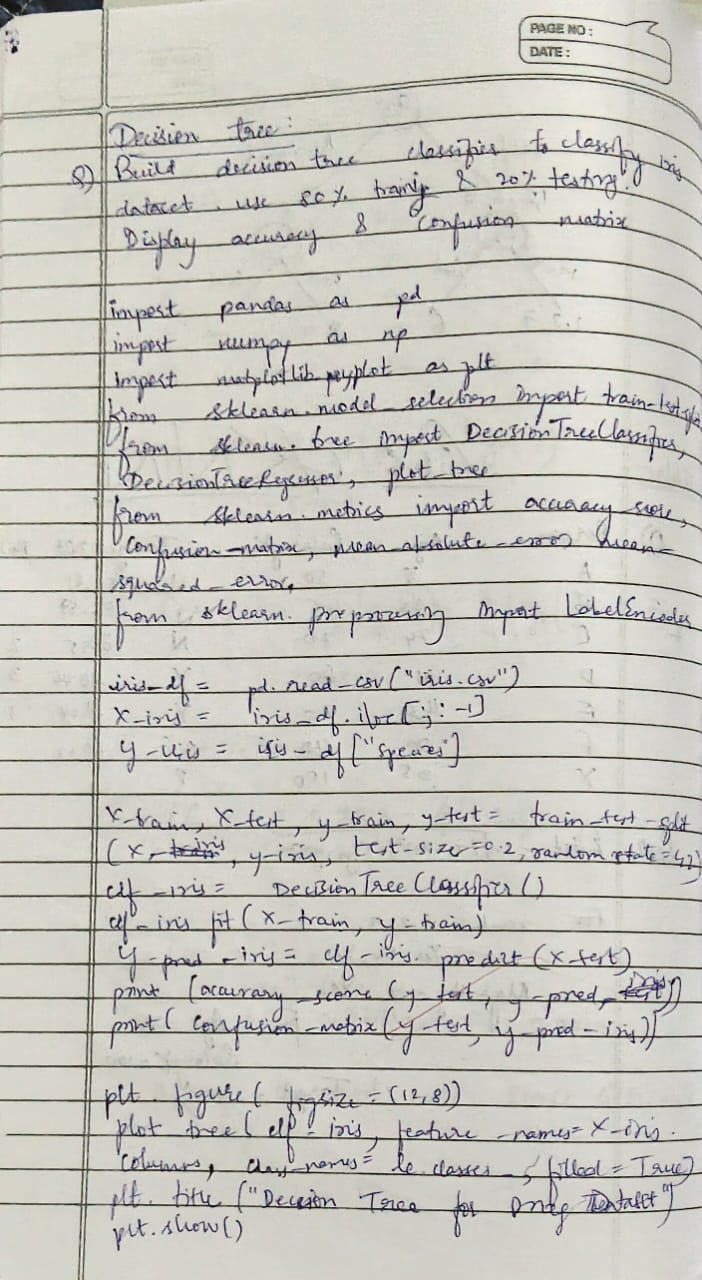 PAGE NO:
DATE:
Decision tree:
Q) Build decision tree classifier to classify iris
dataset. use 80% traning & 20% testing.
Display accuracy & confusion matrix
import pandas as pd
import numpy as np
import matplotlib.pyplot as plt
from sklearn.model_selection import train_test_split
from sklearn.tree import DecisionTreeClassifier,
DecisionTreeRegressor, plot_tree
from sklearn.metrics import accuracy_score,
confusion_matrix, mean_absolute_error, mean_
squared_error,
from sklearn.preprocessing import LabelEncoder
iris_df = pd.read_csv("iris.csv")
X_iris = iris_df.iloc[:,:-1]
y_iris = iris_df["species"]
X_train, X_test, y_train, y_test = train_test_split
(X_iris, y_iris, test_size=0.2, random state=42)
clf_iris = DecisionTreeClassifier()
clf_iris fit(X_train, y_train)
y_pred_iris = clf_iris.predict(X_test)
print(accuracy_score(y_test, y_pred_iris))
print(confusion_matrix(y_test, y_pred_iris))
plt.figure(figsize=(12,8))
plot tree(clf_iris, feature_names=X_iris.
columns, class_names=le.classes_, filled=True)
plt.title("Decision Tree for
plt.show()